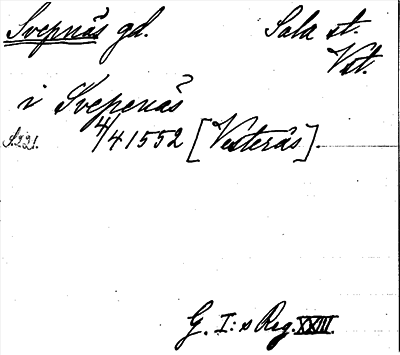 Svepnäs gd. Sala st.
Vst.
i Svepenäs
S. 221. 4/4 1552 [Västerås].
G. I:s Reg. XXIII.